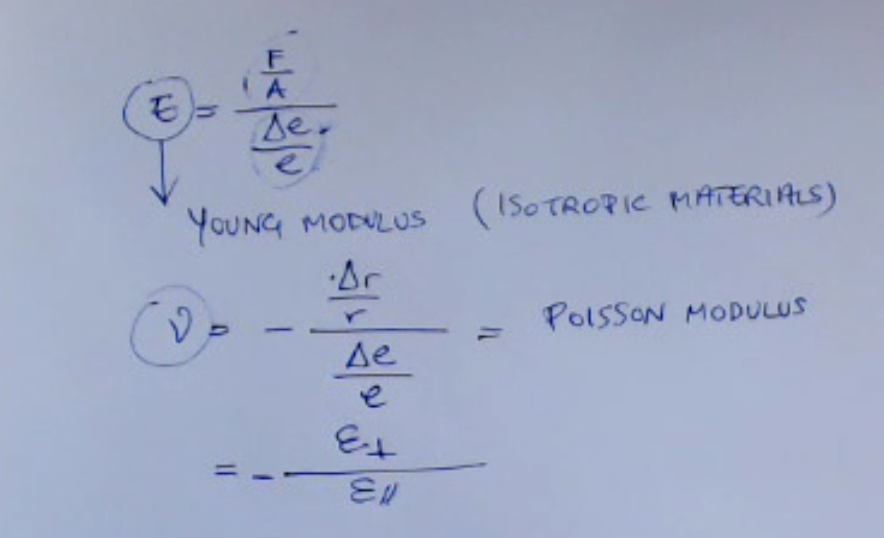 E = (F/A)/(Δe/e)
YOUNG MODULUS (ISOTROPIC MATERIALS)
ν = - (Δr/r)/(Δe/e) = POISSON MODULUS
= - ε⊥/ε//